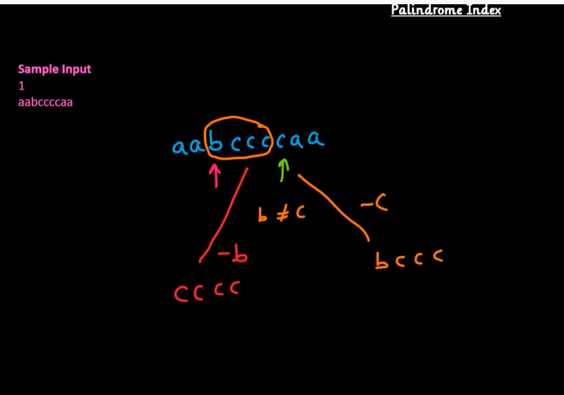 Palindrome Index
Sample Input
1
aabccccaa
aabccccaa
b ≠ c
-c
-b
bccc
cccc